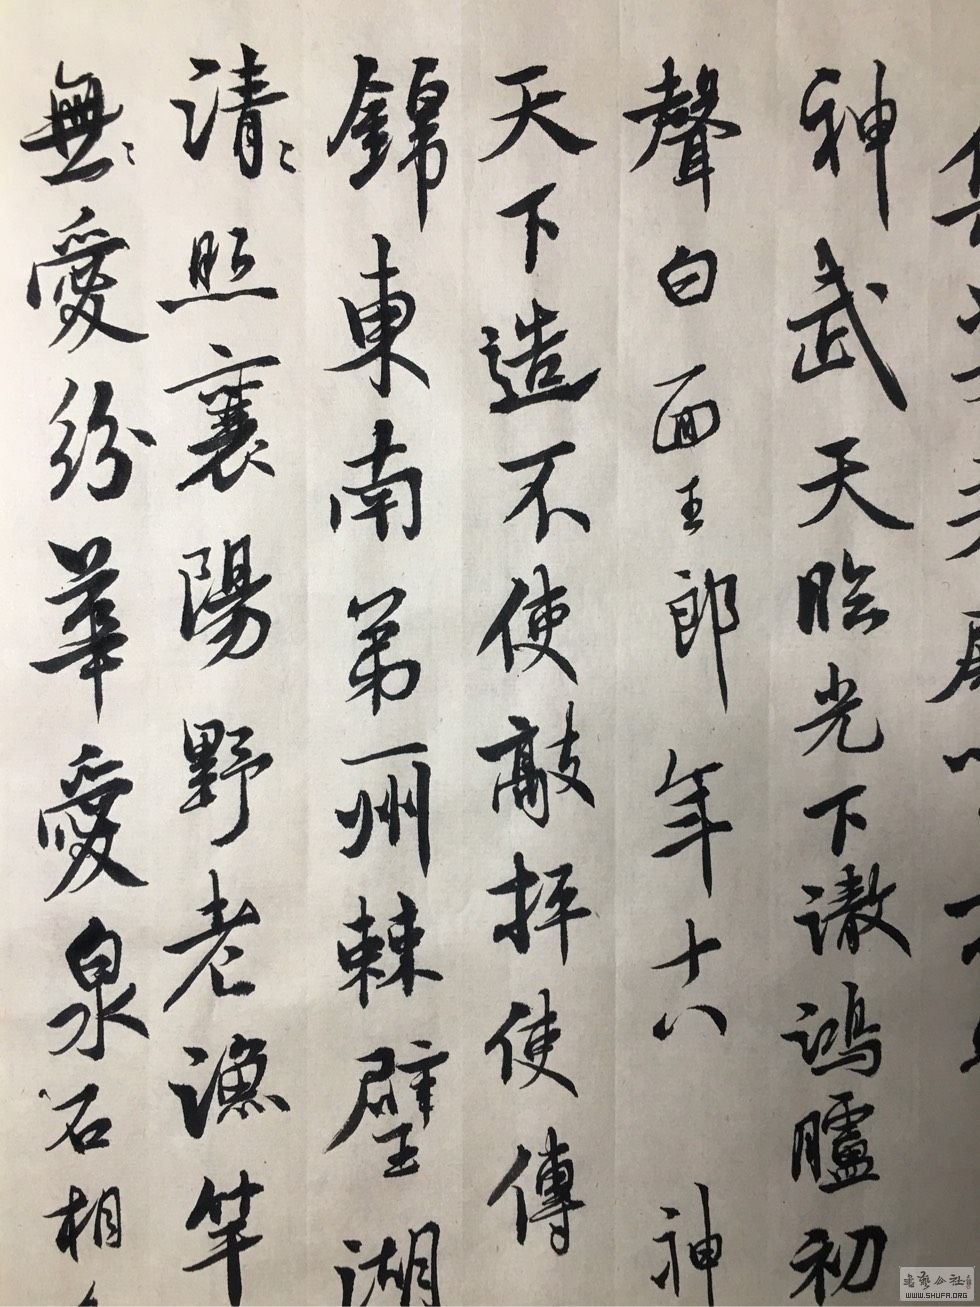 神武天臨光下璈鴻臚初
聲白面王郎年十八 神
天下造不使敲抨使傳
錦東南第一州棘璧湖
清〻照襄陽野老漁竿
無〻愛紛華愛泉石相
書藝公社
WWW.SHUFA.ORG